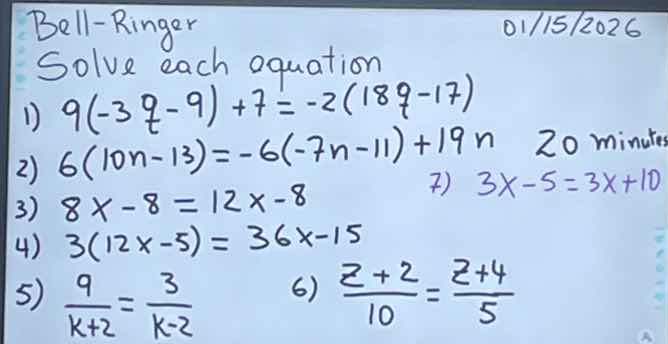 Bell-Ringer 01/15/2026
Solve each equation
1) 9(-3q-9)+7=-2(18q-17)
2) 6(10n-13)=-6(-7n-11)+19n 20 minutes
3) 8x-8=12x-8 7) 3x-5=3x+10
4) 3(12x-5)=36x-15
5) 9/(k+2) = 3/(k-2) 6) (z+2)/10 = (z+4)/5